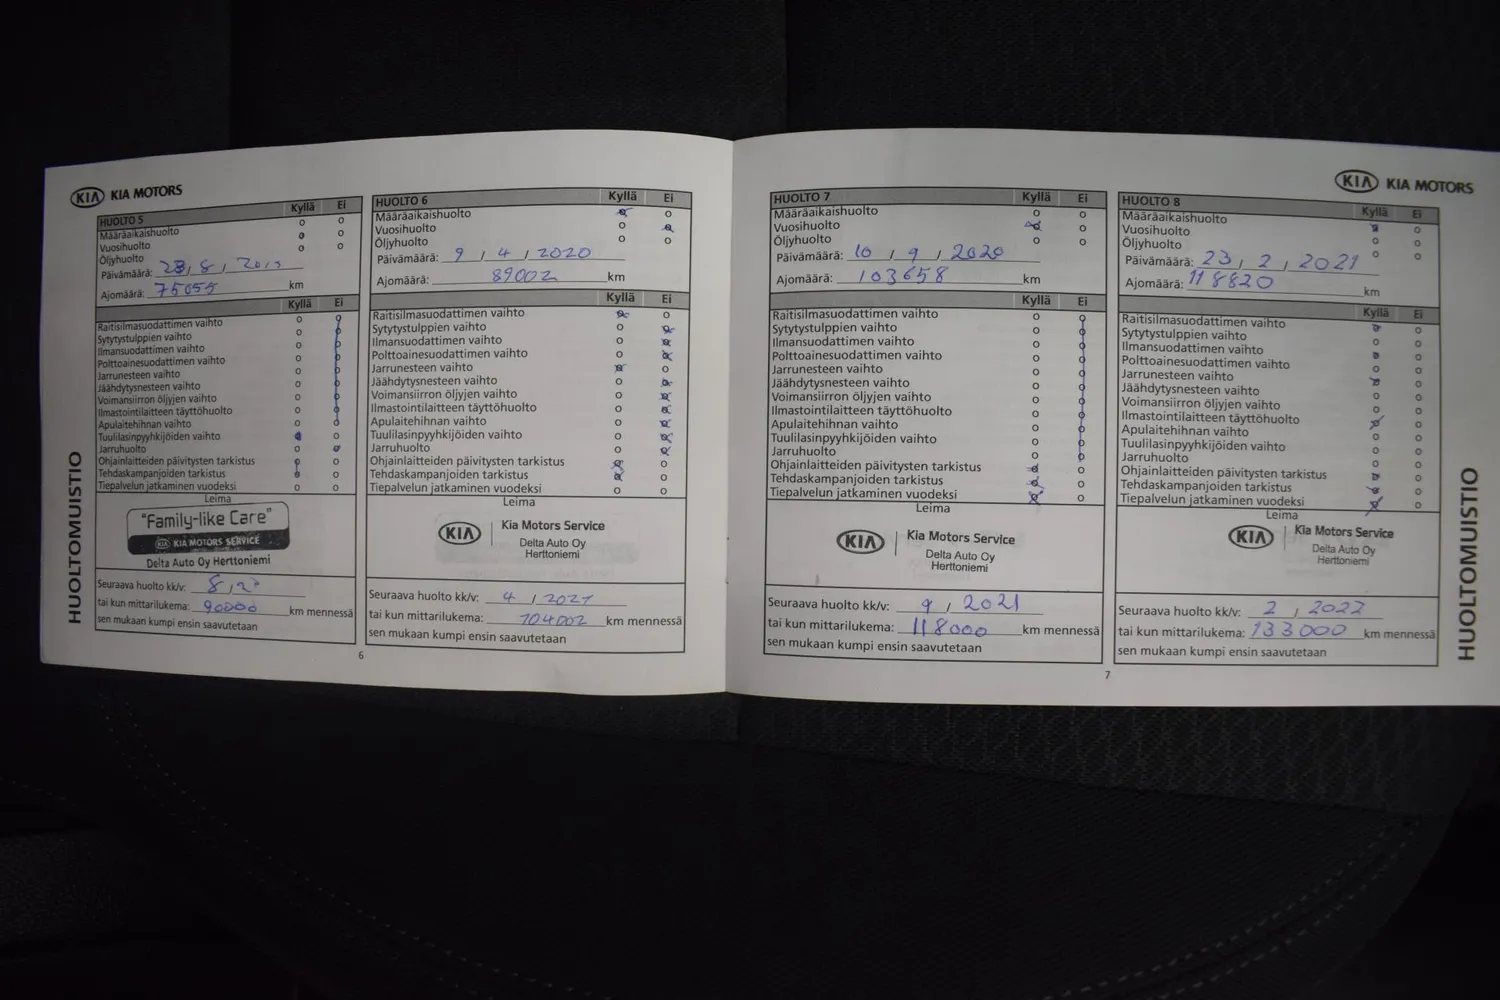 KIA KIA MOTORS
HUOLTOMUISTIO
HUOLTO 5 Kyllä Ei
Määräaikaishuolto o o
Vuosihuolto o o
Öljyhuolto o o
Päivämäärä: 23, 8,
Ajomäärä: 75055 km
Kyllä Ei
Raitisilmasuodattimen vaihto
Sytytystulppien vaihto
Ilmansuodattimen vaihto
Polttoainesuodattimen vaihto
Jarrunesteen vaihto
Jäähdytysnesteen vaihto
Voimansiirron öljyjen vaihto
Ilmastointilaitteen täyttöhuolto
Apulaitehihnan vaihto
Tuulilasinpyyhkijöiden vaihto
Jarruhuolto
Ohjainlaitteiden päivitysten tarkistus
Tehdaskampanjoiden tarkistus
Tiepalvelun jatkaminen vuodeksi
Leima
"Family-like Care"
KIA KIA MOTORS SERVICE
Delta Auto Oy Herttoniemi
Seuraava huolto kk/v: 8,
tai kun mittarilukema: 90000 km mennessä
sen mukaan kumpi ensin saavutetaan
HUOLTO 6 Kyllä Ei
Määräaikaishuolto
Vuosihuolto
Öljyhuolto
Päivämäärä: 9 , 4 , 2020
Ajomäärä: 89002 km
Kyllä Ei
Raitisilmasuodattimen vaihto
Sytytystulppien vaihto
Ilmansuodattimen vaihto
Polttoainesuodattimen vaihto
Jarrunesteen vaihto
Jäähdytysnesteen vaihto
Voimansiirron öljyjen vaihto
Ilmastointilaitteen täyttöhuolto
Apulaitehihnan vaihto
Tuulilasinpyyhkijöiden vaihto
Jarruhuolto
Ohjainlaitteiden päivitysten tarkistus
Tehdaskampanjoiden tarkistus
Tiepalvelun jatkaminen vuodeksi
Leima
KIA Kia Motors Service
Delta Auto Oy
Herttoniemi
Seuraava huolto kk/v: 4 , 2021
tai kun mittarilukema: 104002 km mennessä
sen mukaan kumpi ensin saavutetaan
6
HUOLTO 7 Kyllä Ei
Määräaikaishuolto
Vuosihuolto
Öljyhuolto
Päivämäärä: 10 , 9 , 2020
Ajomäärä: 103658 km
Kyllä Ei
Raitisilmasuodattimen vaihto
Sytytystulppien vaihto
Ilmansuodattimen vaihto
Polttoainesuodattimen vaihto
Jarrunesteen vaihto
Jäähdytysnesteen vaihto
Voimansiirron öljyjen vaihto
Ilmastointilaitteen täyttöhuolto
Apulaitehihnan vaihto
Tuulilasinpyyhkijöiden vaihto
Jarruhuolto
Ohjainlaitteiden päivitysten tarkistus
Tehdaskampanjoiden tarkistus
Tiepalvelun jatkaminen vuodeksi
Leima
KIA Kia Motors Service
Delta Auto Oy
Herttoniemi
Seuraava huolto kk/v: 9 , 2021
tai kun mittarilukema: 118000 km mennessä
sen mukaan kumpi ensin saavutetaan
KIA KIA MOTORS
HUOLTO 8 Kyllä Ei
Määräaikaishuolto
Vuosihuolto
Öljyhuolto
Päivämäärä: 23 , 2 , 2021
Ajomäärä: 118820 km
Kyllä Ei
Raitisilmasuodattimen vaihto
Sytytystulppien vaihto
Ilmansuodattimen vaihto
Polttoainesuodattimen vaihto
Jarrunesteen vaihto
Jäähdytysnesteen vaihto
Voimansiirron öljyjen vaihto
Ilmastointilaitteen täyttöhuolto
Apulaitehihnan vaihto
Tuulilasinpyyhkijöiden vaihto
Jarruhuolto
Ohjainlaitteiden päivitysten tarkistus
Tehdaskampanjoiden tarkistus
Tiepalvelun jatkaminen vuodeksi
Leima
KIA Kia Motors Service
Delta Auto Oy
Herttoniemi
Seuraava huolto kk/v: 2 , 2022
tai kun mittarilukema: 133000 km mennessä
sen mukaan kumpi ensin saavutetaan
7
HUOLTOMUISTIO